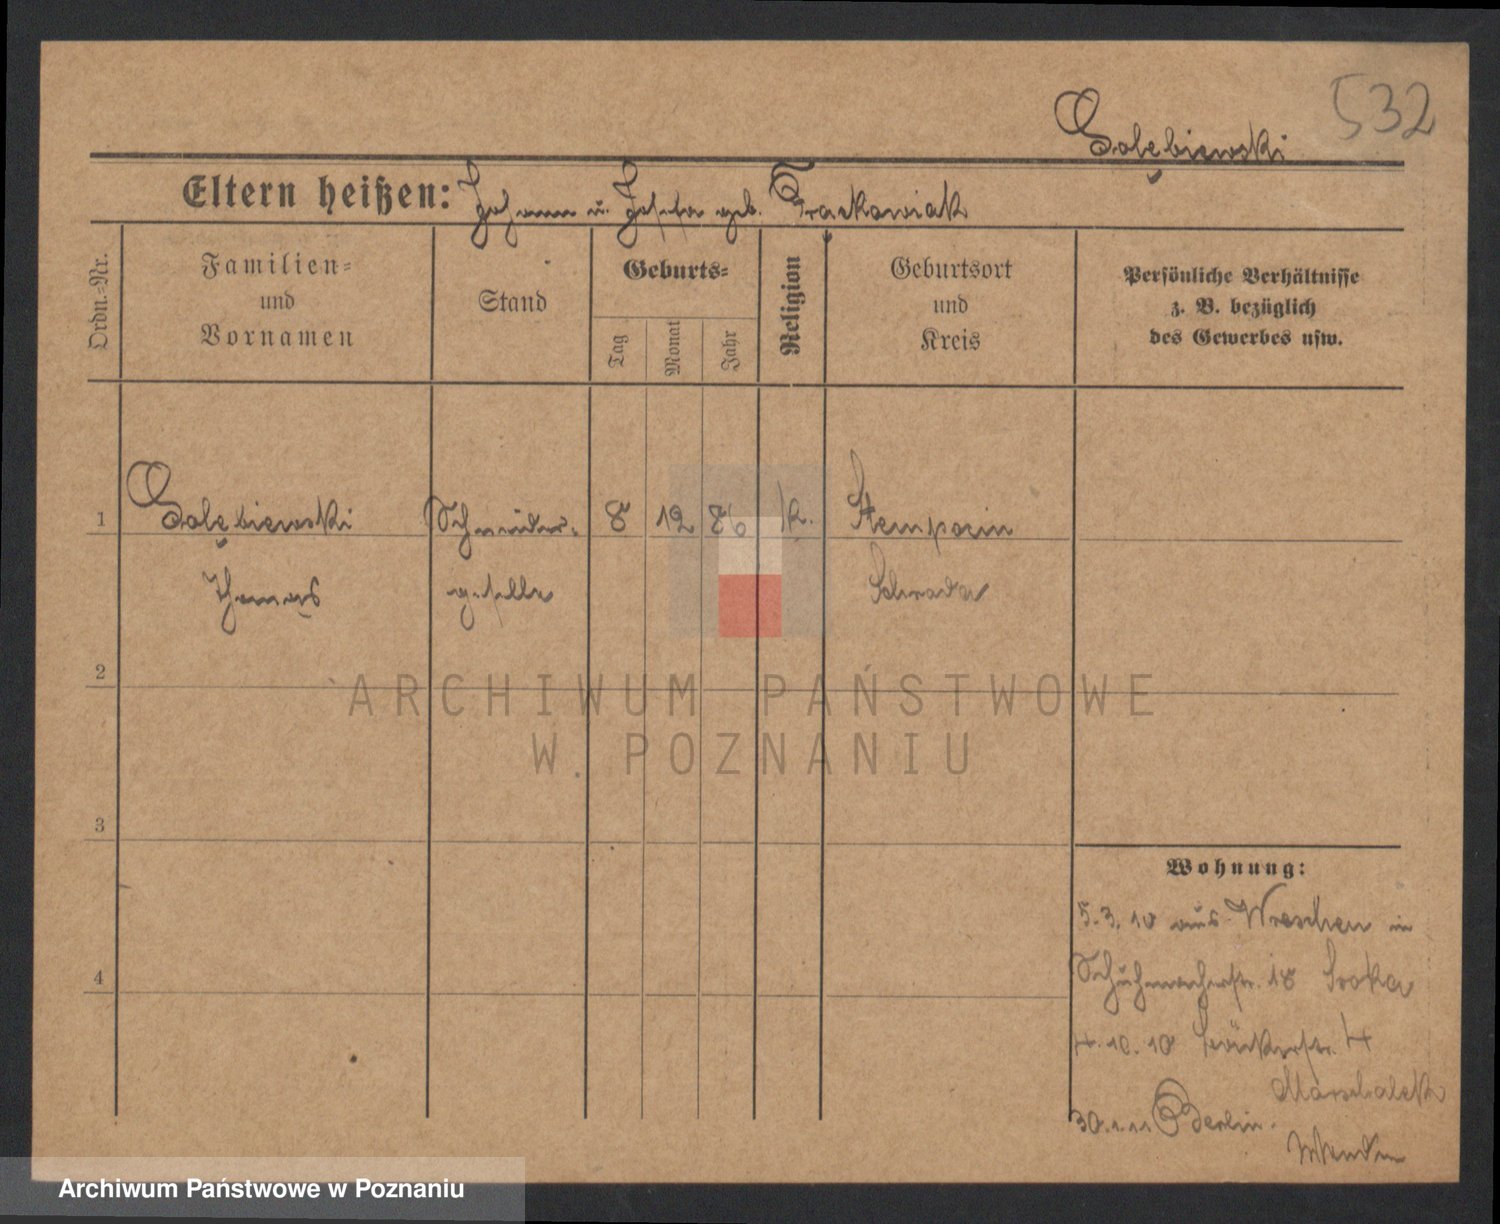 532
Golębiewski
Eltern heißen: Johann u. Josefa geb. Frackowiak
Ordn.=Nr.
Familien=
und
Vornamen
Stand
Geburts=
Tag
Monat
Jahr
Religion
Geburtsort
und
Kreis
Persönliche Verhältnisse
z. B. bezüglich
des Gewerbes usw.
1
Golębiewski Schneider= 8 12 86 k. Stempocin
Thomas geselle Schroda
2
ARCHIWUM PAŃSTWOWE
W POZNANIU
3
Wohnung:
5.3.10 aus Wreschen in
4
Schuhmacherstr. 18 Sroka
4.10.10 4
Marschalek
30.1.11 Berlin.
Archiwum Państwowe w Poznaniu